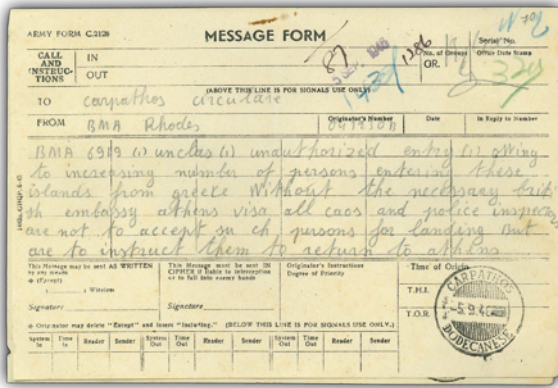 ARMY FORM C.2128
MESSAGE FORM
Serial No.
CALL AND INSTRUC- TIONS
IN
OUT
No. of Groups
GR.
Office Date Stamp
87
5 SEP 1946
1286
329
(ABOVE THIS LINE IS FOR SIGNALS USE ONLY)
TO carpathos circulare
FROM BMA Rhodes
Originator's Number
Date
In Reply to Number
BMA 6969 (1) unclas (1) unauthorized entry (1) owing
to increasing number of persons entering these
islands from greece without the necessary briti
sh embassy athens visa all caos and police inspectors
are not to accept su ch persons for landing but
are to instruct them to return to athens
This Message may be sent AS WRITTEN by any means
(Except)
Wireless
Signature
This Message must be sent IN CIPHER if liable to interception or to fall into enemy hands
Signature
Originator's Instructions
Degree of Priority
Time of Origin
T.H.I.
T.O.R.
CARPATHOS
5.9.46
DODECANESE
Originator may delete "Except" and insert "Including." (BELOW THIS LINE IS FOR SIGNALS USE ONLY.)
System In
Time In
Reader
Sender
System Out
Time Out
Reader
Sender
System Out
Time Out
Reader
Sender